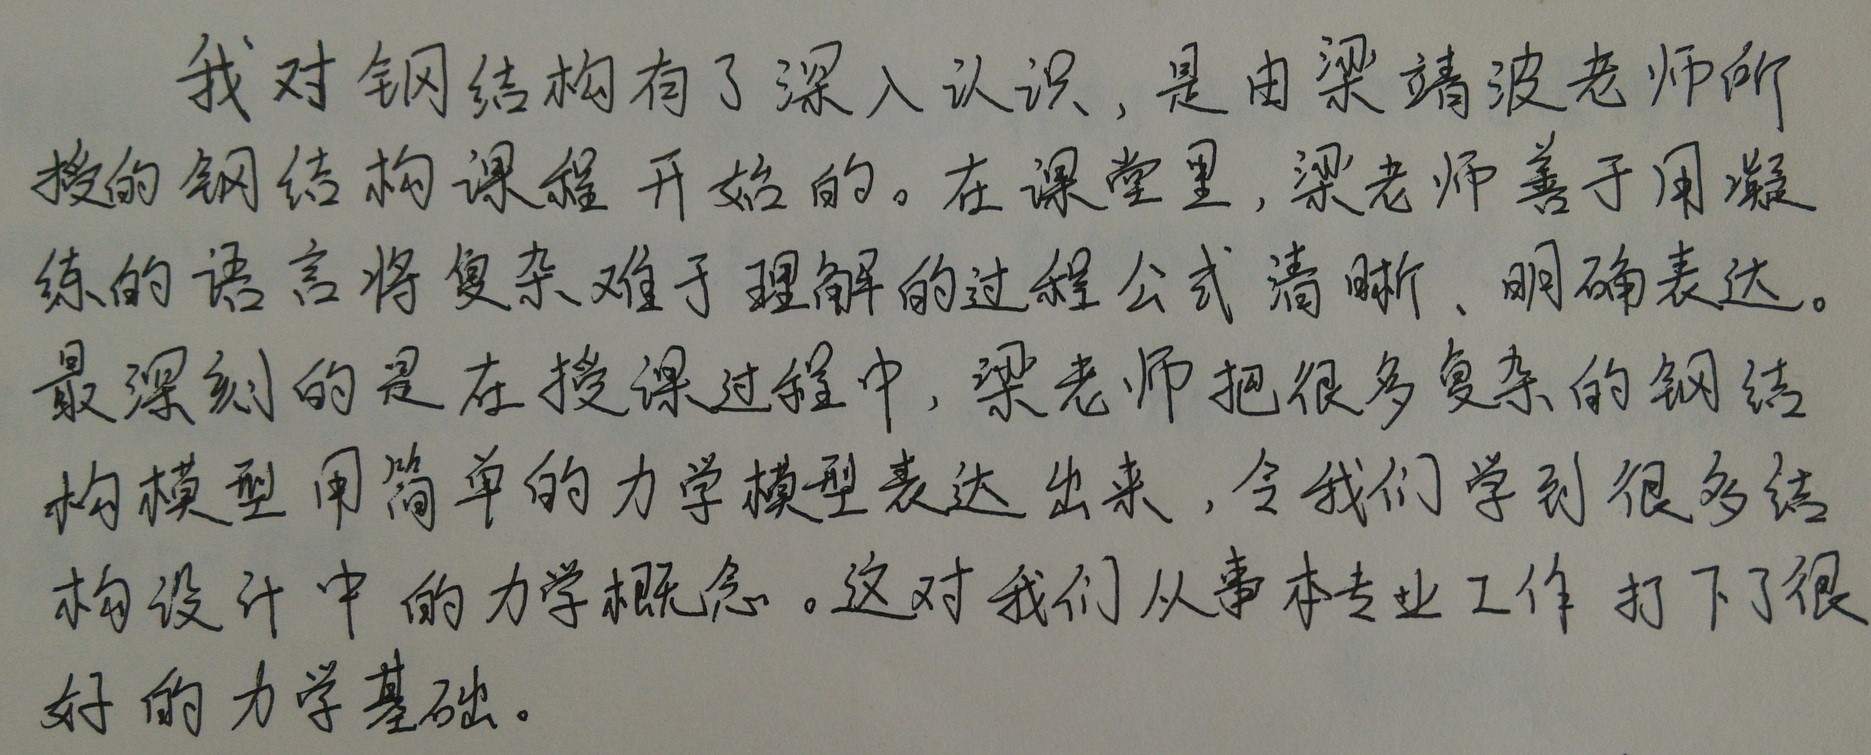 我对钢结构有了深入认识,是由梁靖波老师所
授的钢结构课程开始的。在课堂里,梁老师善于用凝
练的语言将复杂难于理解的过程公式清晰、明确表达。
最深刻的是在授课过程中,梁老师把很多复杂的钢结
构模型用简单的力学模型表达出来,令我们学到很多结
构设计中的力学概念。这对我们从事本专业工作打下了很
好的力学基础。